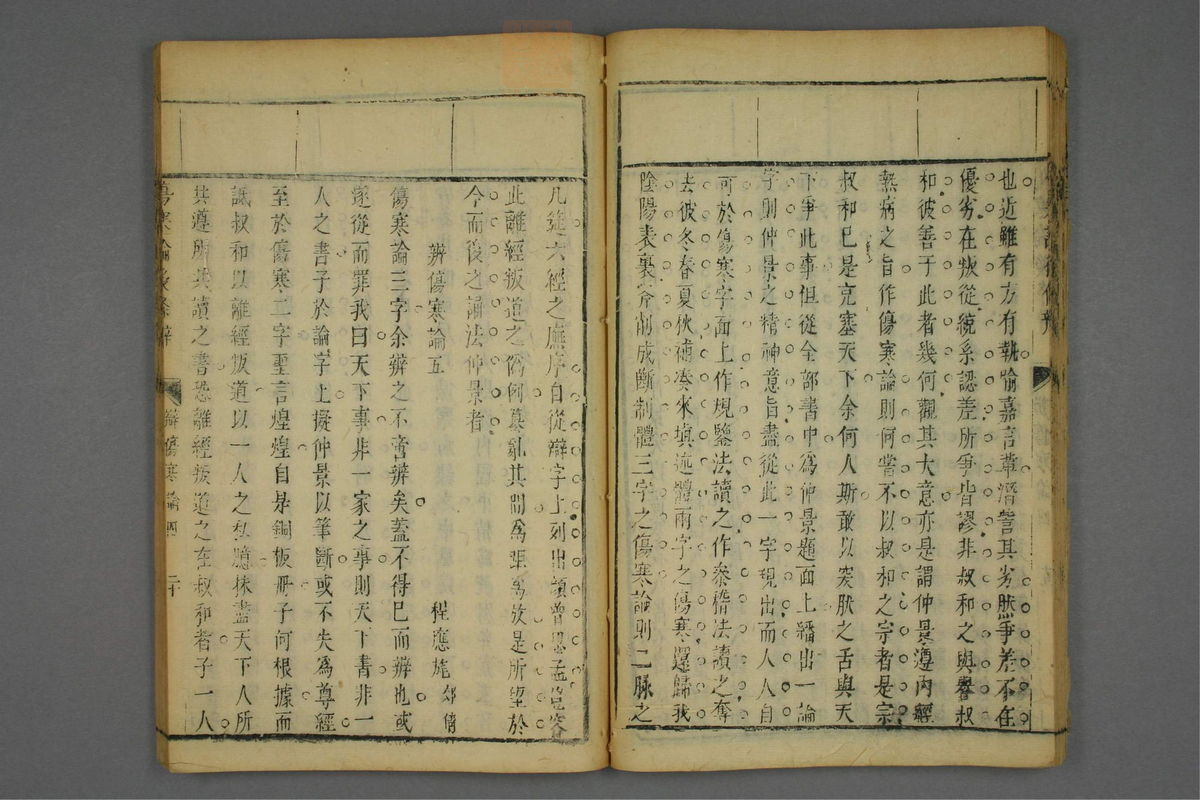 也近雖有方有執喻嘉言輩潛訾其劣然爭差不在
優劣在叛從統系認差所爭皆謬非叔和之與譽叔
和彼善于此者幾何觀其大意亦是謂仲景遵內經
熱病之旨作傷寒論則何嘗不以叔和之宗者是宗
叔和已是充塞天下余何人斯敢以突然之舌與天
下爭此事但從全部書中為仲景題面上繙出一論
字則仲景之精神意旨盡從此一字現出而人人自
可於傷寒字面上作規鑒法讀之作叅稽法讀之奪
去彼冬春夏秋補凑來填迹體兩字之傷寒還歸我
陰陽表裏斧削成斷制體三字之傷寒論則二脉之
凡逆六經之應序自從辯字上列出頭曾思孟豈容
此離經叛道之僞例纂亂其間為眼為放是所望於
今而後之誦法仲景者
辨傷寒論五
程應旄 郊倩
傷寒論三字余辨之不啻辨矣蓋不得已而辨也或
遂從而罪我曰天下事非一家之事則天下書非一
人之書子於論字上擬仲景以筆斷或不失為尊經
至於傷寒二字聖言煌煌自是銅板冊子何根據而
詆叔和以離經叛道以一人之私臆抹盡天下人所
共遵所共讀之書恐離經叛道之在叔和者子一人
傷寒論後條辨
辯傷寒論四
二十